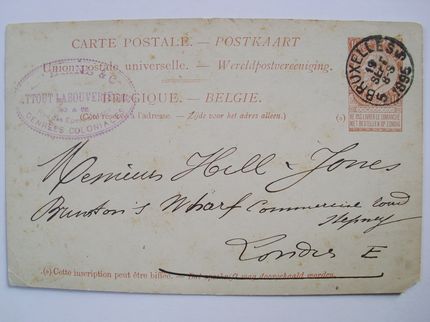 CARTE POSTALE. — POSTKAART
Union postale universelle. — Wereldpostvereeniging.
BELGIQUE. — BELGIE.
(Côté réservé à l'adresse. — Zijde voor het adres alleen.)
& Co
DENRÉES COLONIALES
BRUXELLES
1895
NE PAS LIVRER LE DIMANCHE
NIET BESTELLEN OP ZONDAG
(a)
Messieurs Hill-Jones
Brunton's Wharf Commercial road
Stepney
Londres E
(a) Cette inscription peut être biffée. — Dit opschrift mag doorgehaald worden.